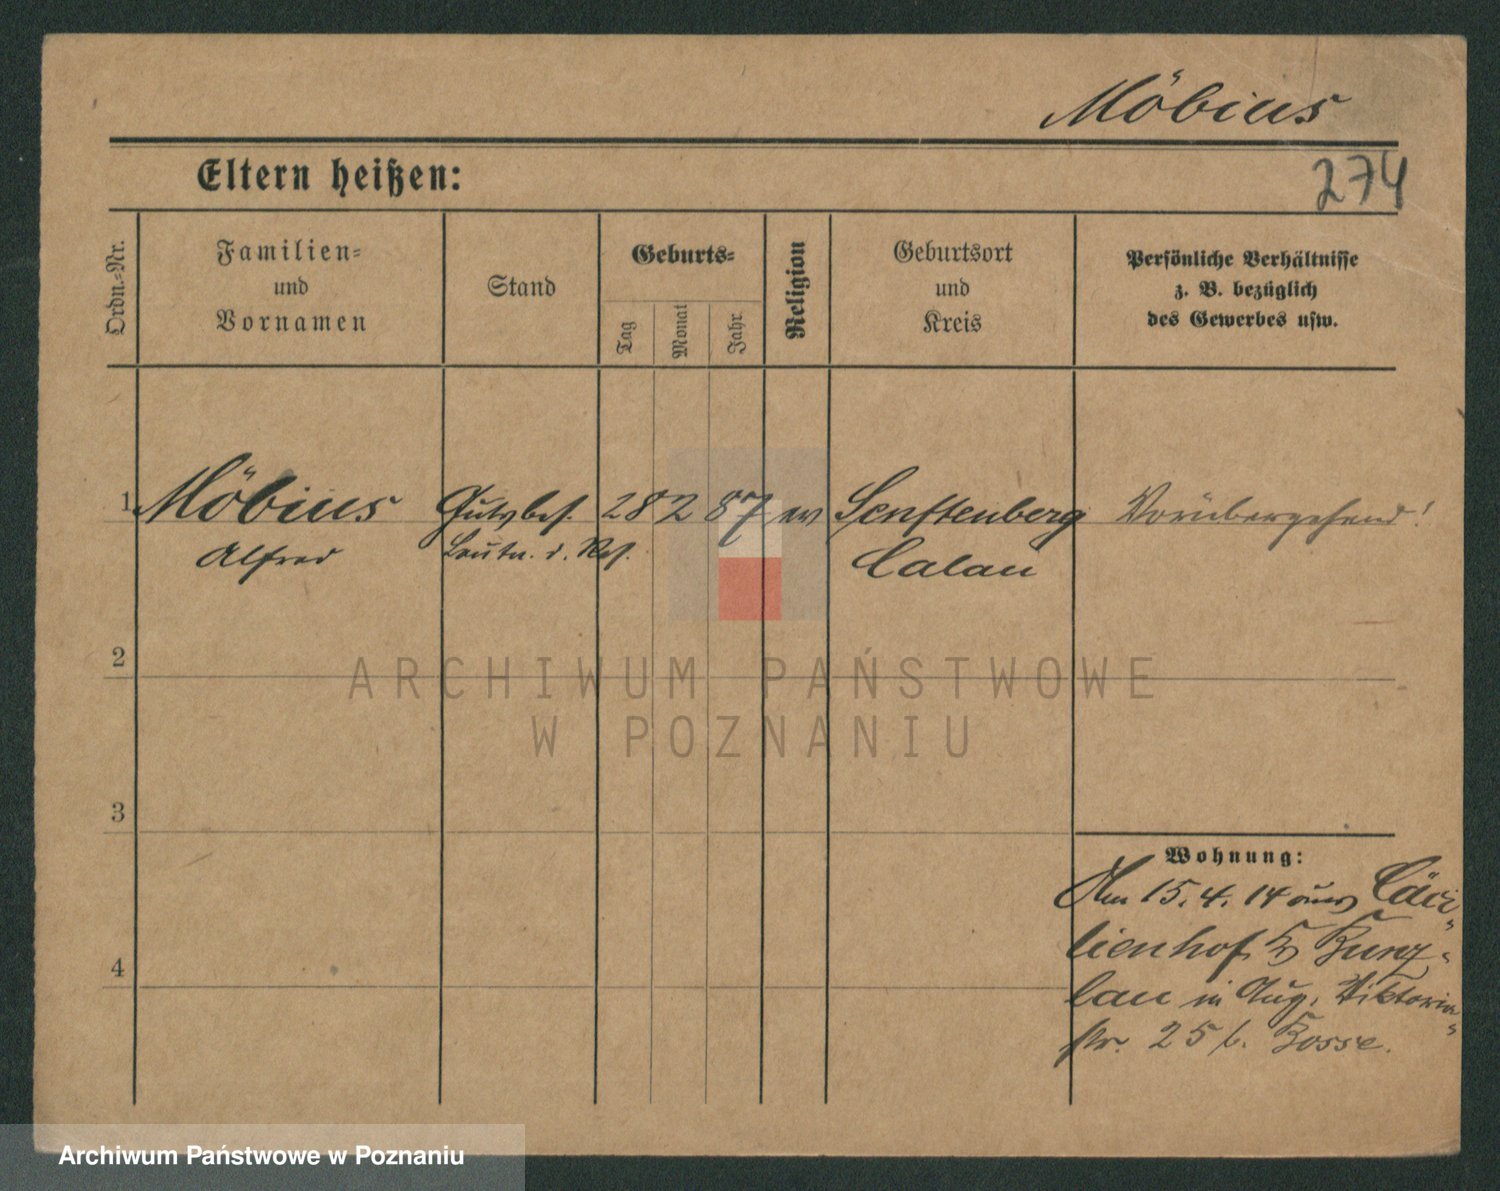 Möbius
Eltern heißen:
274
Ordn.-Nr.
Familien-
und
Vornamen
Stand
Geburts-
Tag
Monat
Jahr
Religion
Geburtsort
und
Kreis
Persönliche Verhältnisse
z. B. bezüglich
des Gewerbes usw.
1 Möbius Gutsbes. 28 2 87 ev Senftenberg Vorübergehend!
Alfred Leutn. d. Res. Calau
2
ARCHIWUM PAŃSTWOWE
W POZNANIU
3
Wohnung:
Am 15. 4. 14 aus Cäci-
lienhof Kr Bunz-
4
lau in Aug. Viktoria-
str. 25 b. Bosse.
Archiwum Państwowe w Poznaniu